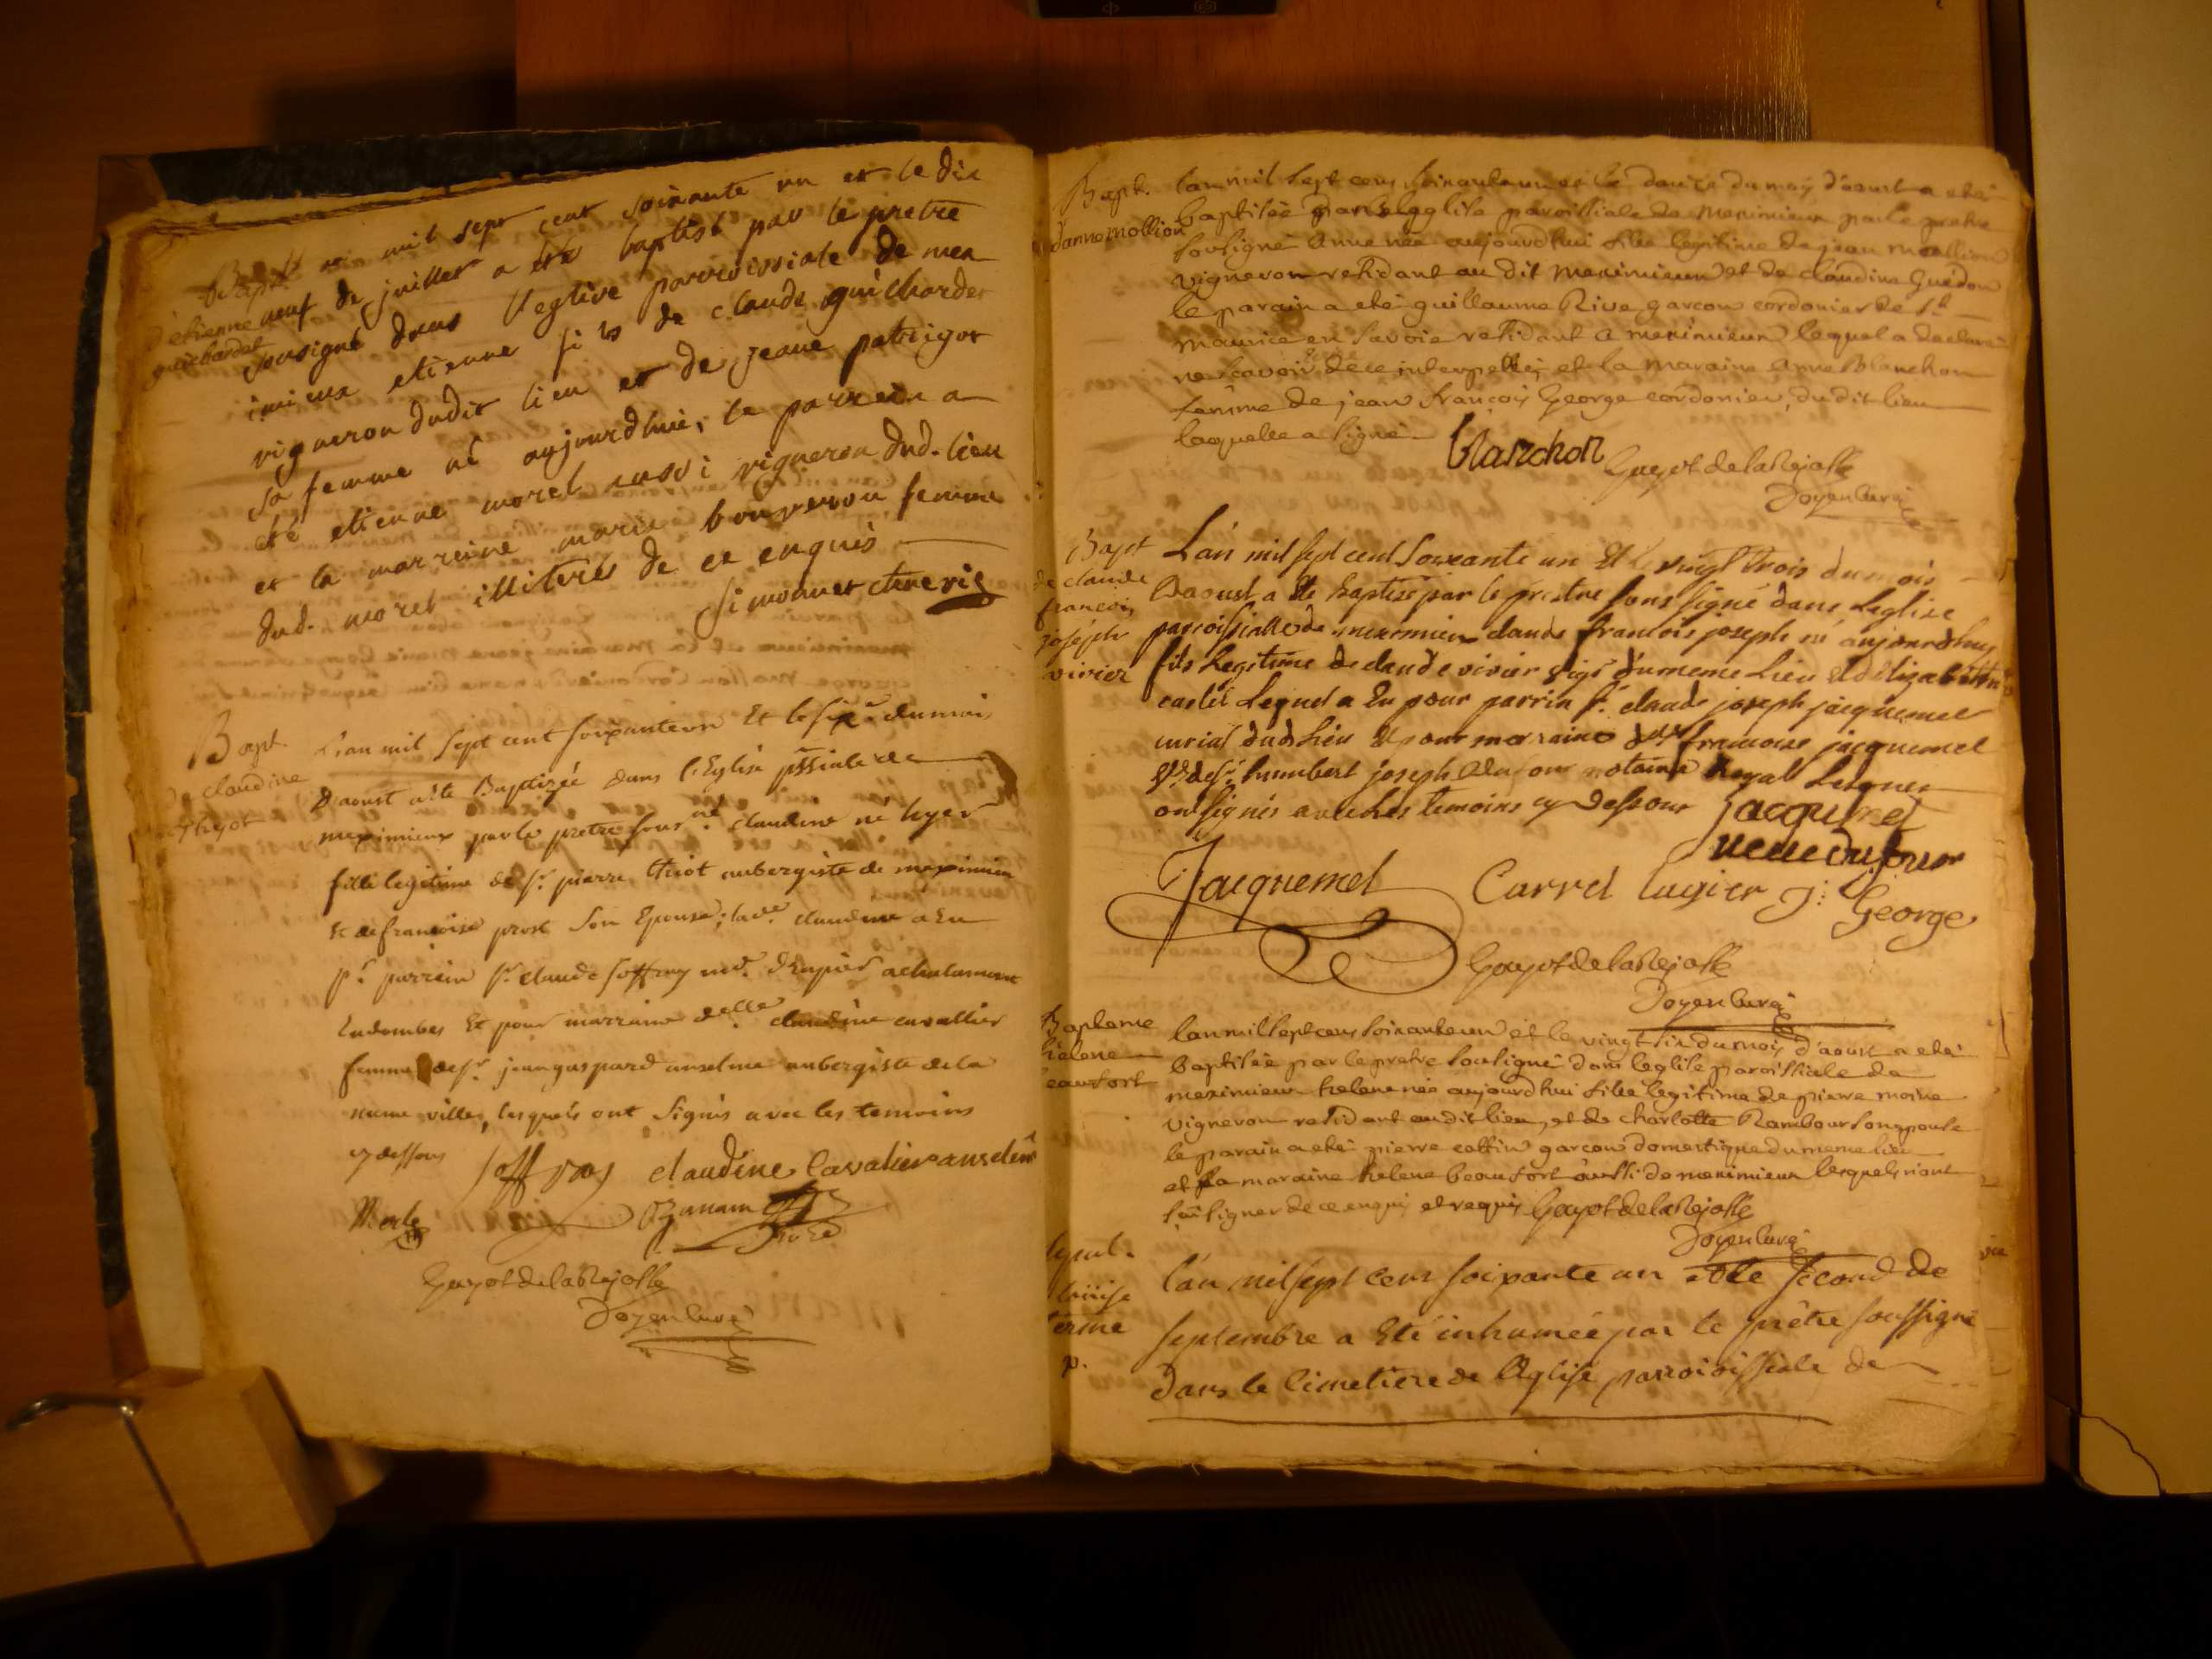 Bapt.
d'etienne
guichardet
mil sept cent soixante un et le dix
neuf de juillet a été baptisé par le pretre
sousigné dans l'eglise parroissiale de mex
imieux etienne fils de claude guichardet
vigneron dudit lieu et de jeane patrigot
sa femme né aujourdhui, le parrein a
été etienne morel aussi vigneron dud. lieu
et la marreine marie bonpenon femme
dud. morel illiterés de ce enquis
simonnet
Bapt.
claudine
thyot
L'an mil sept cent soixante un Et le six.e du mois
d'aoust a été Baptizée dans l'Eglise pssialle de
meximieux par le pretre souss.né claudine né hyer
fille legitime de Sr. pierre thiot aubergiste de meximieux
& de francoise prost son Epouse; lad.e claudine a Eu
pr. parrain Sr. claude soffray md. drapier a chalamont
En dombes Et pour marraine delle. claudine cavallier
femme de Sr. jean gaspard anselme aubergiste de la
meme ville, lesquels ont signés avec les temoins
cy dessous
soffray claudine Cavalier anselme
Merle Ozanam
Guyot de la Rejasse
Doyen Curé
Bapt.
d'anne mollion
l'an mil sept cens soixante un et le douze du moy d'aoust a eté
baptisée dans l'eglise paroissiale de meximieux par le pretre
sousigné Anne née aujourd'hui fille legitime de jean mollion
vigneron residant au dit meximieux et de claudine Guédon
le parain a eté guillaume Rive garcon cordonier de St.
maurice en savoie residant a meximieux lequel a declaré
ne scavoir de ce interpellé; et la maraine Anne Blanchon
famme de jean francois George cordonier, du dit lieu
laquelle a signé.
blanchon
Guyot de la Rejasse
Doyen Curé
Bapt
de claude
francois
joseph
vivier
L'an mil sept cent soixante un Et le vingt trois du mois
Daoust a été baptisé par le prestre sous signé dans Leglise
paroissialle de meximieux claude francois joseph né aujourdhuy
fils Legitime de claude vivier du meme Lieu et d'Elizabeth
castel Lequel a Eu pour parrin Sr. claude joseph jacquemet
curial dud Lieu Et pour marraine francoise jacquemet
de Sr. humbert joseph dufour notaire Royal Lesques
on signés avec Les temoins cy dessous
jacquemet
veuve dufour
Jacquemet Carrel Cugier j: George
Guyot de la Rejasse
Doyen Curé
Bapteme
helene
beaufort
l'an mil sept cens soixante un et le vingt six du moy d'aoust a eté
baptisée par le pretre sousigné dans l'eglise paroissiale de
meximieux helene née aujourd'hui fille legitime de pierre moine
vigneron residant au dit lieu, et de charlotte Rambour son epouse
le parain a eté pierre cottin garcon domestique du meme lieu
et la maraine helene beaufort aussi de meximieux lesquels n'ont
sçu signer de ce enquis et requis Guyot de la Rejasse
Doyen Curé
l'an mil sept cens soixante un et le second de
septembre a Eté inhumée par le prêtre soussigné
Dans le Cimetiere de l'Eglise parroissiale de